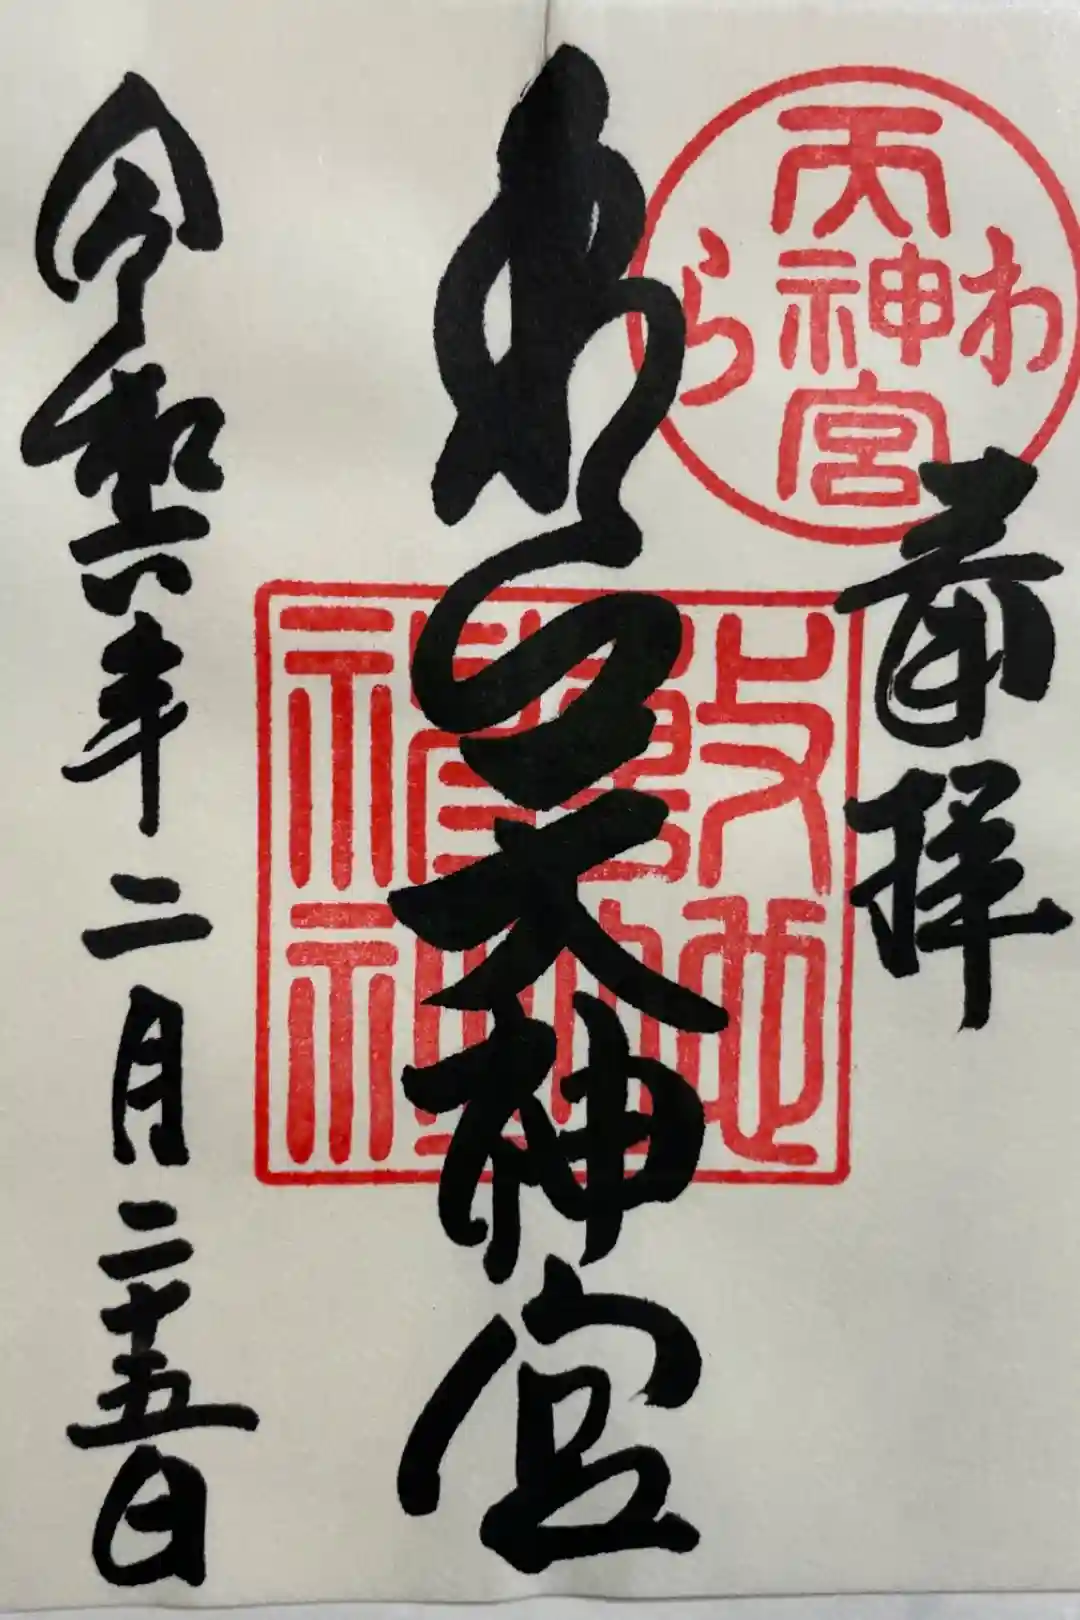 奉拝
わら
天神宮
わら天神宮
敷地
令和六年二月二十五日